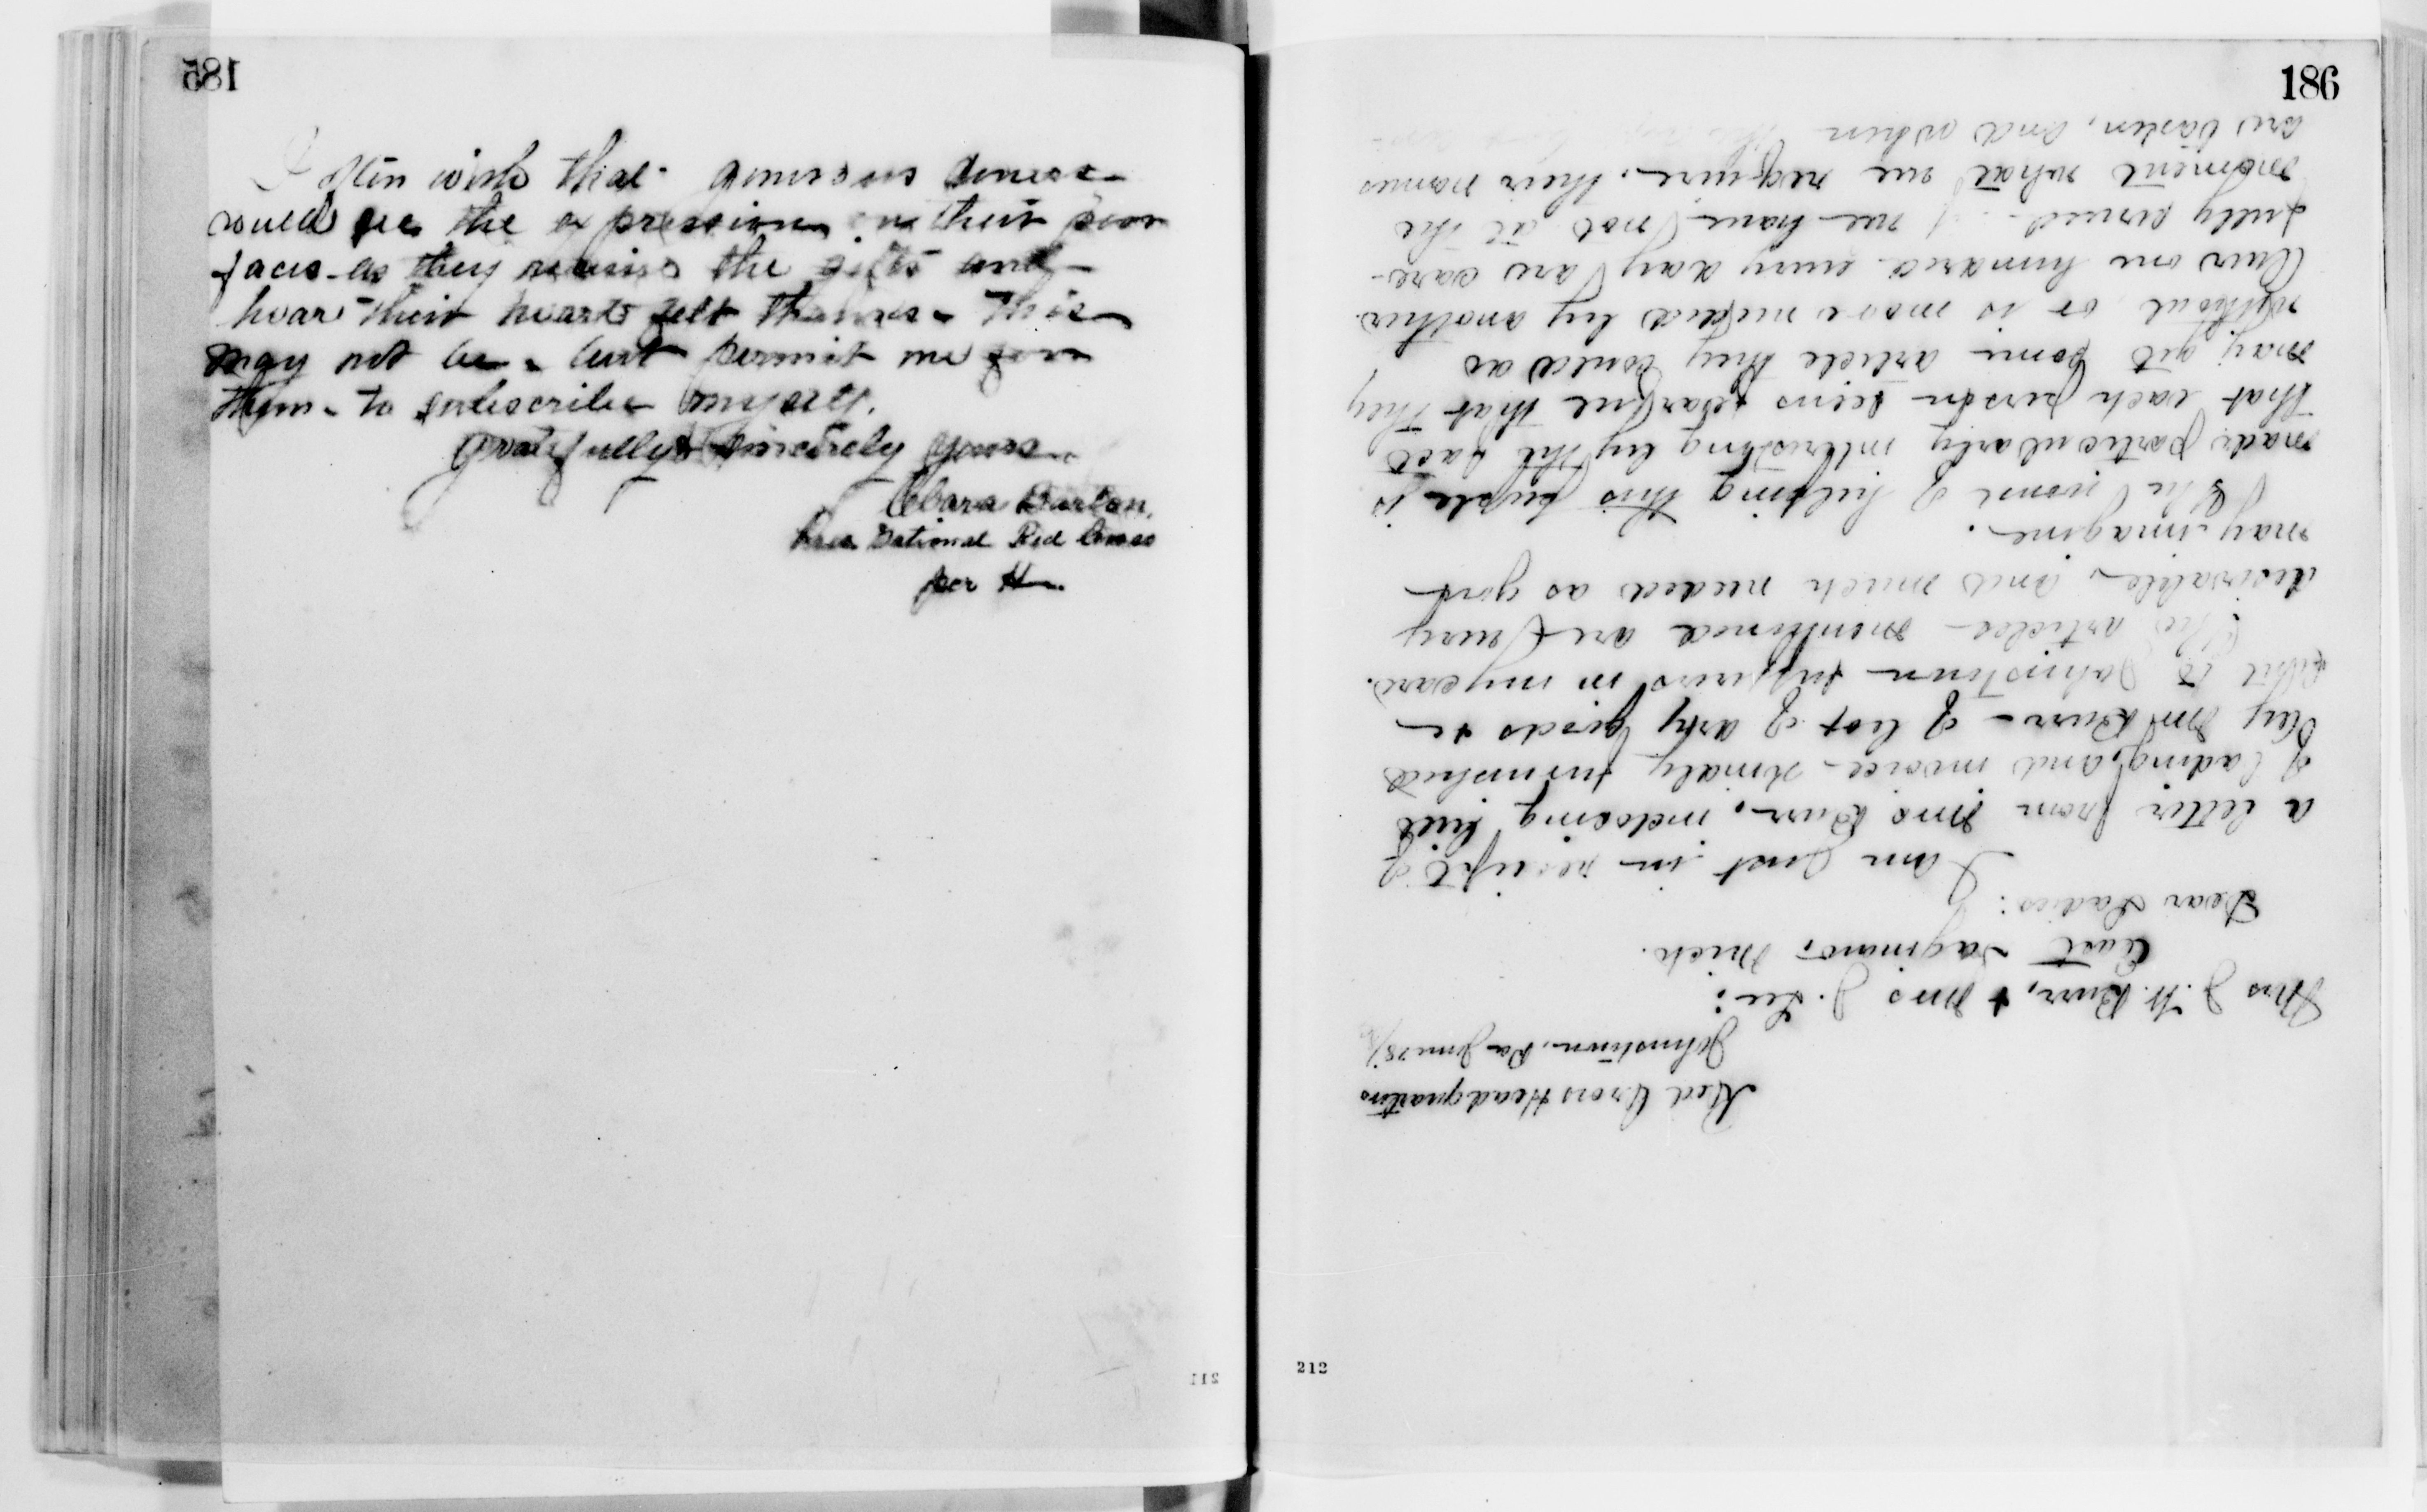 185
I often wish that generous donors
could see the expression on their poor
faces as they receive the gifts and
hear their heart felt thanks. This
may not be, but permit me for
them to subscribe myself.
Gratefully & sincerely yours
Clara Barton,
Pres. National Red Cross
per H
211
186
Red Cross Headquarters
Johnstown, Pa June 28/
Mrs J. W. Burr, & Mrs J. Lee:
East Saginaw, Mich.
Dear Ladies:
I am just in receipt of
a letter from Mrs Burr, inclosing bill
of lading, and invoice kindly furnished
by Mr Burr of lot of dry goods &c
sent to Johnstown sufferers in my care.
The articles mentioned are very
desirable, and much needed as you
may imagine.
The work of helping this people is
made particularly interesting by the fact
that each person seems fearful that they
may get some article they could do
without or is more needed by another.
Over one hundred every day are care-
fully served. If we have not at the
moment what we require, their names
are taken, and when
212